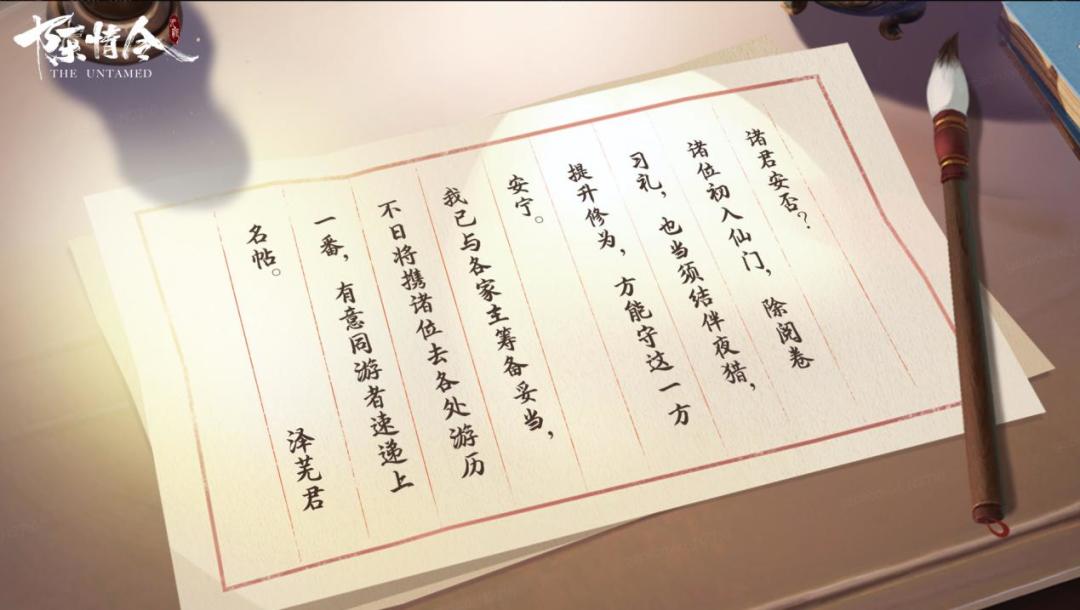 陈情令
THE UNTAMED
诸君安否？
诸位初入仙门，除阅卷
习礼，也当须结伴夜猎，
提升修为，方能守这一方
安宁。
我已与各家主筹备妥当，
不日将携诸位去各处游历
一番，有意同游者速递上
名帖。
泽芜君